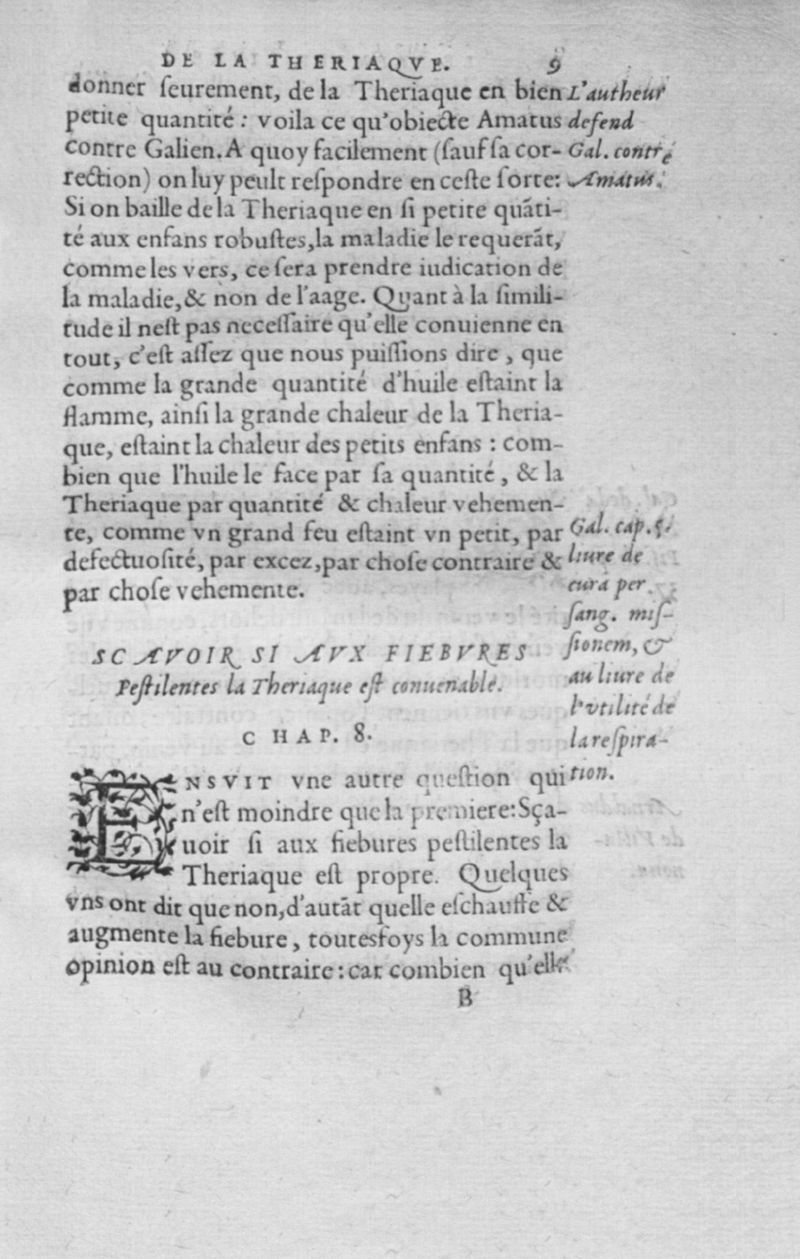 DE LA THERIAQVE. 9
donner ſeurement, de la Theriaque en bien
petite quantité : voila ce qu'obiecte Amatus
contre Galien. A quoy facilement (ſauf ſa cor-
rection) on luy peult reſpondre en ceſte ſorte:
Si on baille de la Theriaque en ſi petite quãti-
té aux enfans robuſtes, la maladie le requerãt,
comme les vers, ce ſera prendre iudication de
la maladie, & non de l'aage. Quant à la ſimili-
tude il neſt pas neceſſaire qu'elle conuienne en
tout, c'eſt aſſez que nous puiſſions dire, que
comme la grande quantité d'huile eſtaint la
flamme, ainſi la grande chaleur de la Theria-
que, eſtaint la chaleur des petits enfans : com-
bien que l'huile le face par ſa quantité, & la
Theriaque par quantité & chaleur vehemen-
te, comme vn grand feu eſtaint vn petit, par
defectuoſité, par excez, par choſe contraire &
par choſe vehemente.
L'autheur
defend
Gal. contre
Amatus.
Gal. cap. 5.
liure de
cura per
ſang. miſ-
ſionem, &
au liure de
l'vtilité de
la reſpira-
tion.
SCAVOIR SI AVX FIEBVRES
Peſtilentes la Theriaque eſt conuenable.
CHAP. 8.
ENSVIT vne autre queſtion qui
n'eſt moindre que la premiere: Sça-
uoir ſi aux fiebures peſtilentes la
Theriaque eſt propre. Quelques
vns ont dit que non, d'autãt quelle eſchauffe &
augmente la fiebure, toutesfoys la commune
opinion eſt au contraire: car combien qu'elle
B